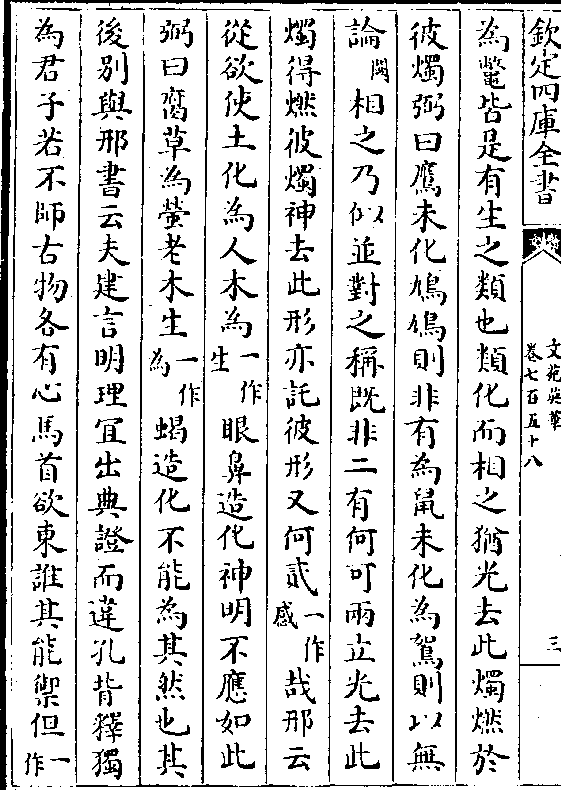 欽定四庫全書
文苑英華
卷七百五十八
三
為鼈皆是有生之類也類化而相之猶光去此燭燃於
彼燭弼曰鷹未化鳩鳩則非有為鼠未化為鴽則以無
論闕相之乃似並對之稱既非二有何可兩立光去此
燭得燃彼燭神去此形亦託彼形又何貳一作惑哉邢云
從欲使土化為人木為一作生眼鼻造化神明不應如此
弼曰腐草為螢老木生一作為蝎造化不能為其然也其
後别與邢書云夫建言明理宜出典證而違孔背釋獨
為君子若不師古物各有心馬首欲東誰其能禦但一作